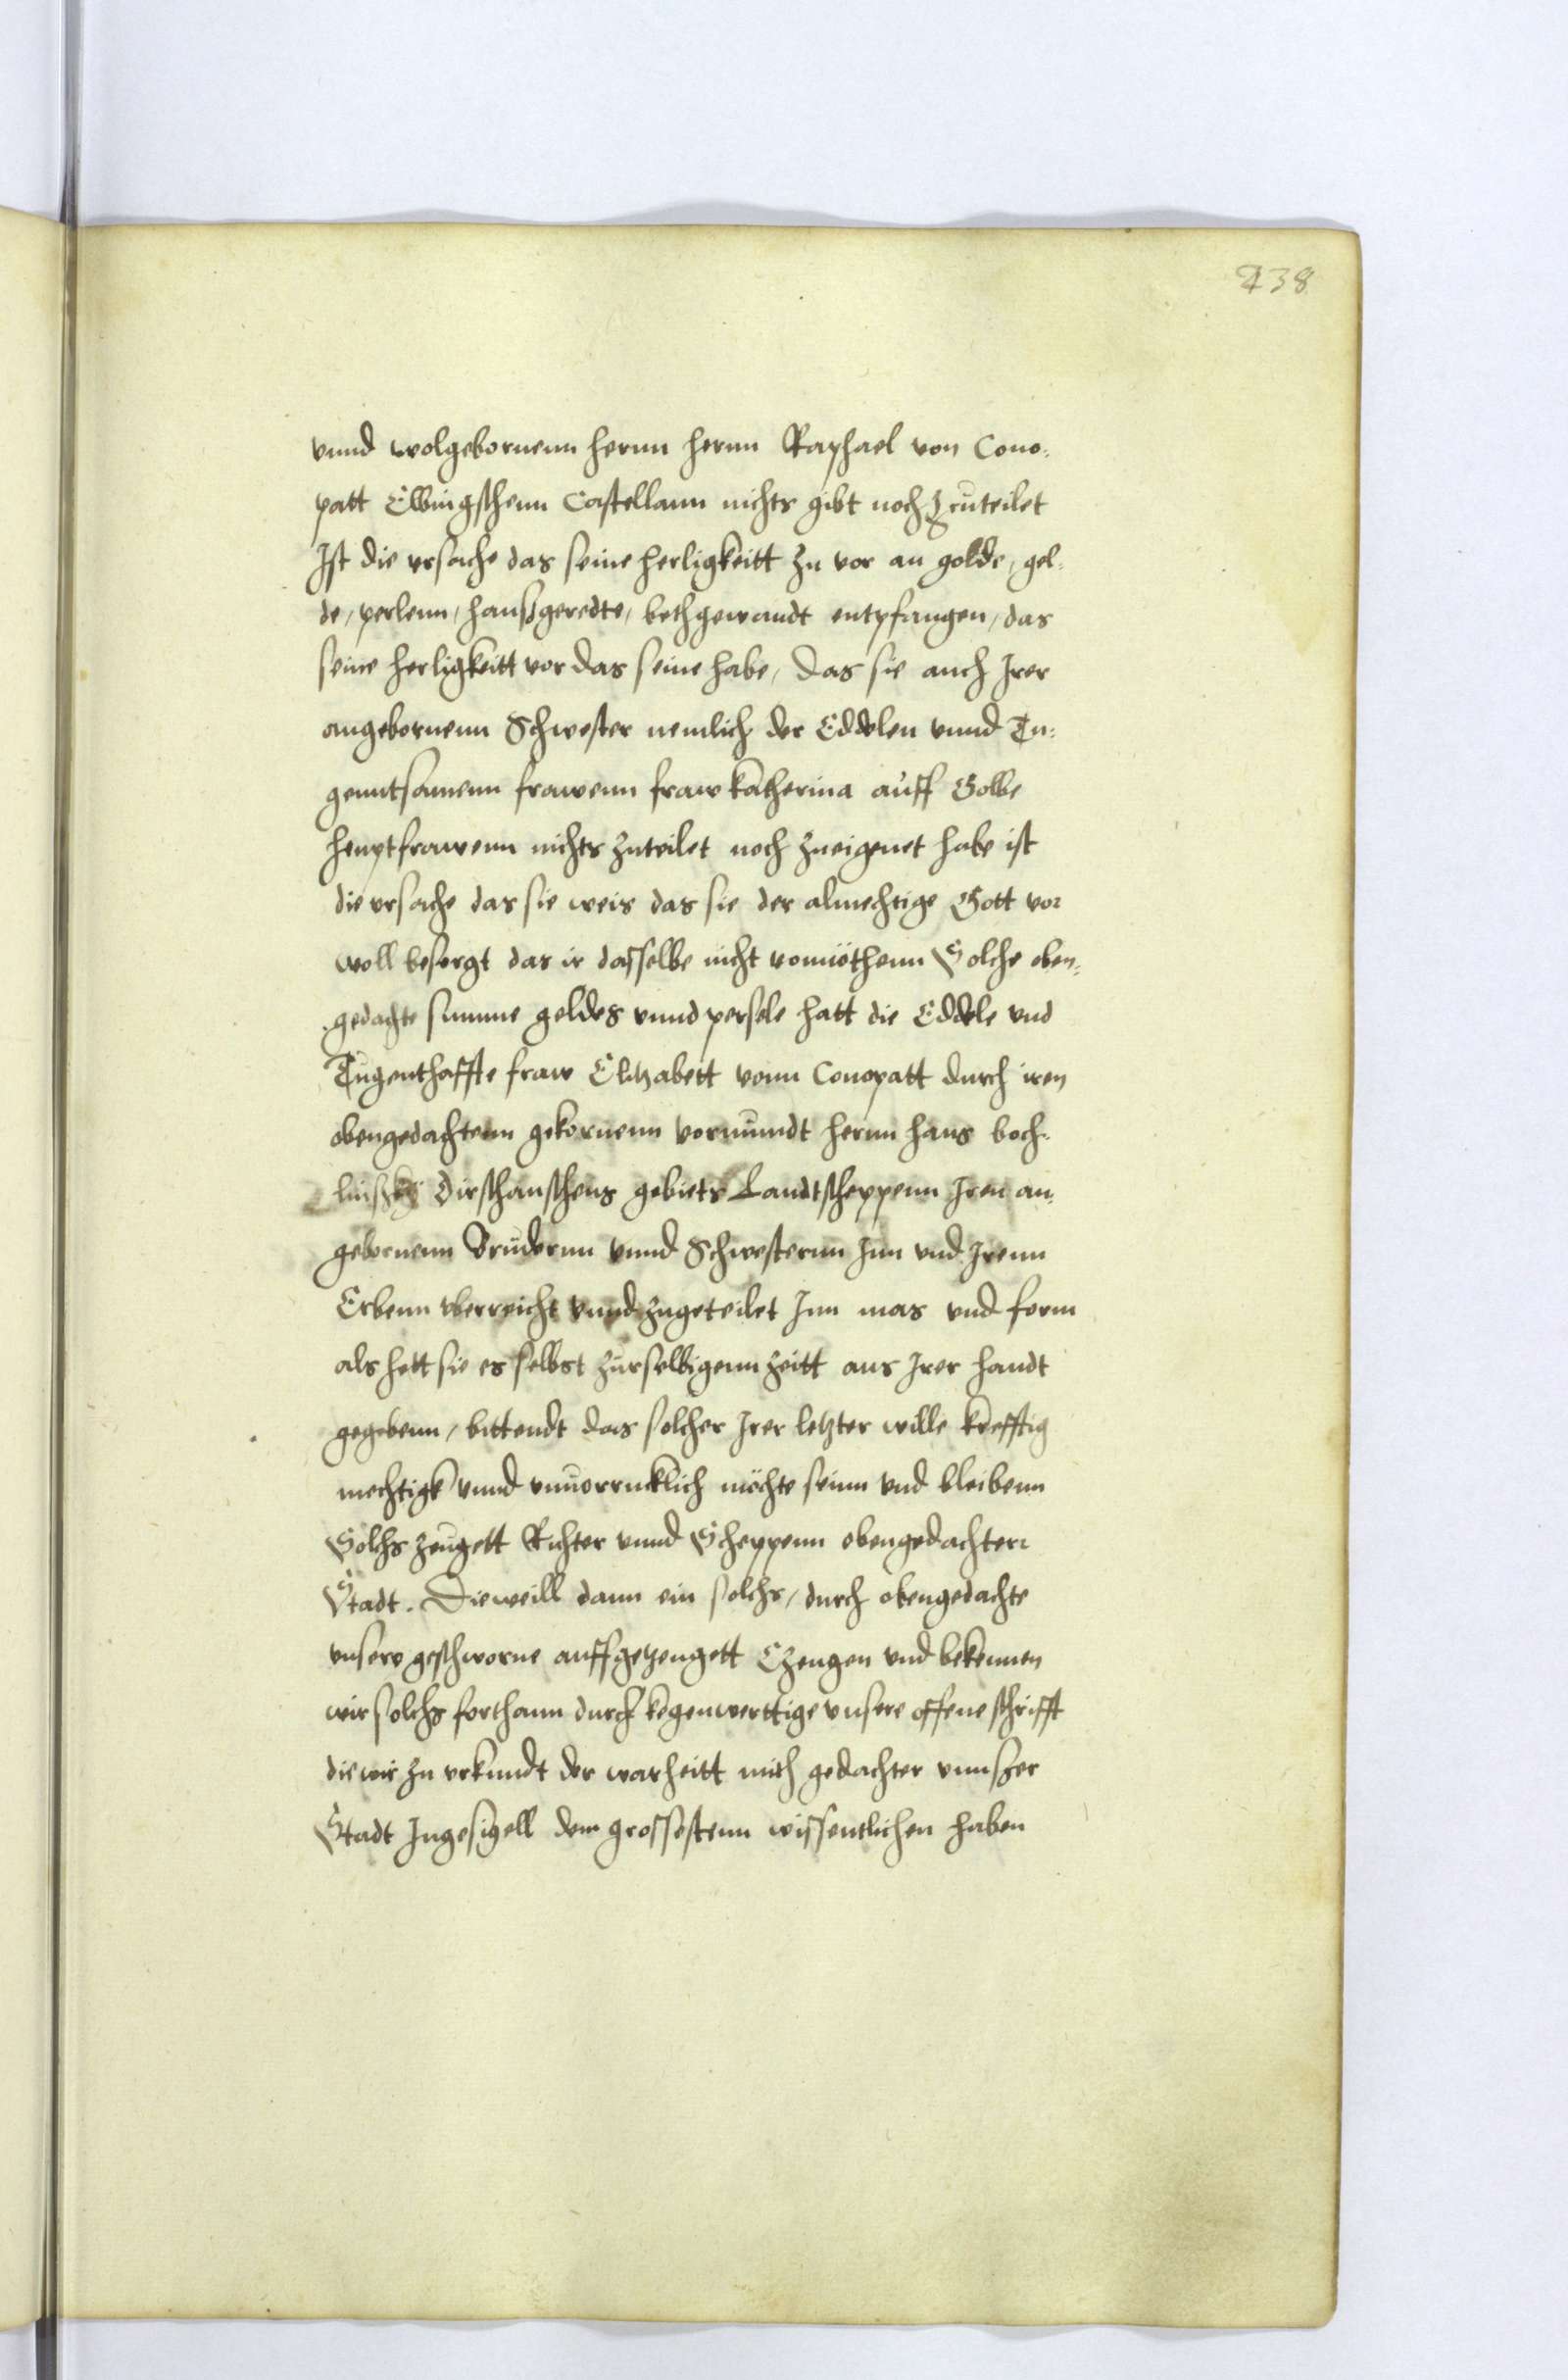 438
vnnd wolgebornenn hernn hernn Raphael von Cono-
patt Elbingschenn Castellann nichts gibt noch zcuteilet
Ist die vrsache das seine herligkeitt zu vor an golde, gel-
de, perlenn, haußgeredte, bethgewandt entpfangen, das
seine herligkeitt vor das seine habe, das sie auch Irer
angebornenn Schwester nemlich der Eddelen vnnd Tu-
genntsamenn frawenn fraw katherina auff Golbe
heuptfrawenn nichts zuteilet noch zueigenet habe ist
die vrsache das sie weis das sie der almechtige Gott vor
woll besorgt das ir dasselbe nicht vonnöthenn Solche oben-
gedachte summe geldes vnnd persele hatt die Eddele vnd
Tugenthaffte fraw Elitzabett vonn Conopatt durch iren
obengedachtenn gekornenn vormundt hernn hans boch-
linßky Dirschauschens gebiets Landtscheppenn Iren an-
gebornenn Brudernn vnnd Schwesternn Inn vnd Irenn
Erbenn vberreicht vnnd zugeteilet Inn mas vnd form
als hett sie es selbst zurselbigenn zeitt aus Irer handt
gegebenn, bittendt das solcher Irer letzter wille krefftig
mechtigk vnnd vnuorrucklich möchte seinn vnd bleibenn
Solchs zeugett Richter vnnd Scheppenn obengedachter
Stadt. Dieweill dann ein solchs, durch obengedachte
vnsere geschworne auffgetzeugett Czeugen vnd bekennen
wir solchs forthann durch kegenwerttige vnsere offene schrifft
die wir zu vrkundt der warheitt mith gedachter vnnßer
Stadt Ingesigell dem grossestenn wissentlichen haben